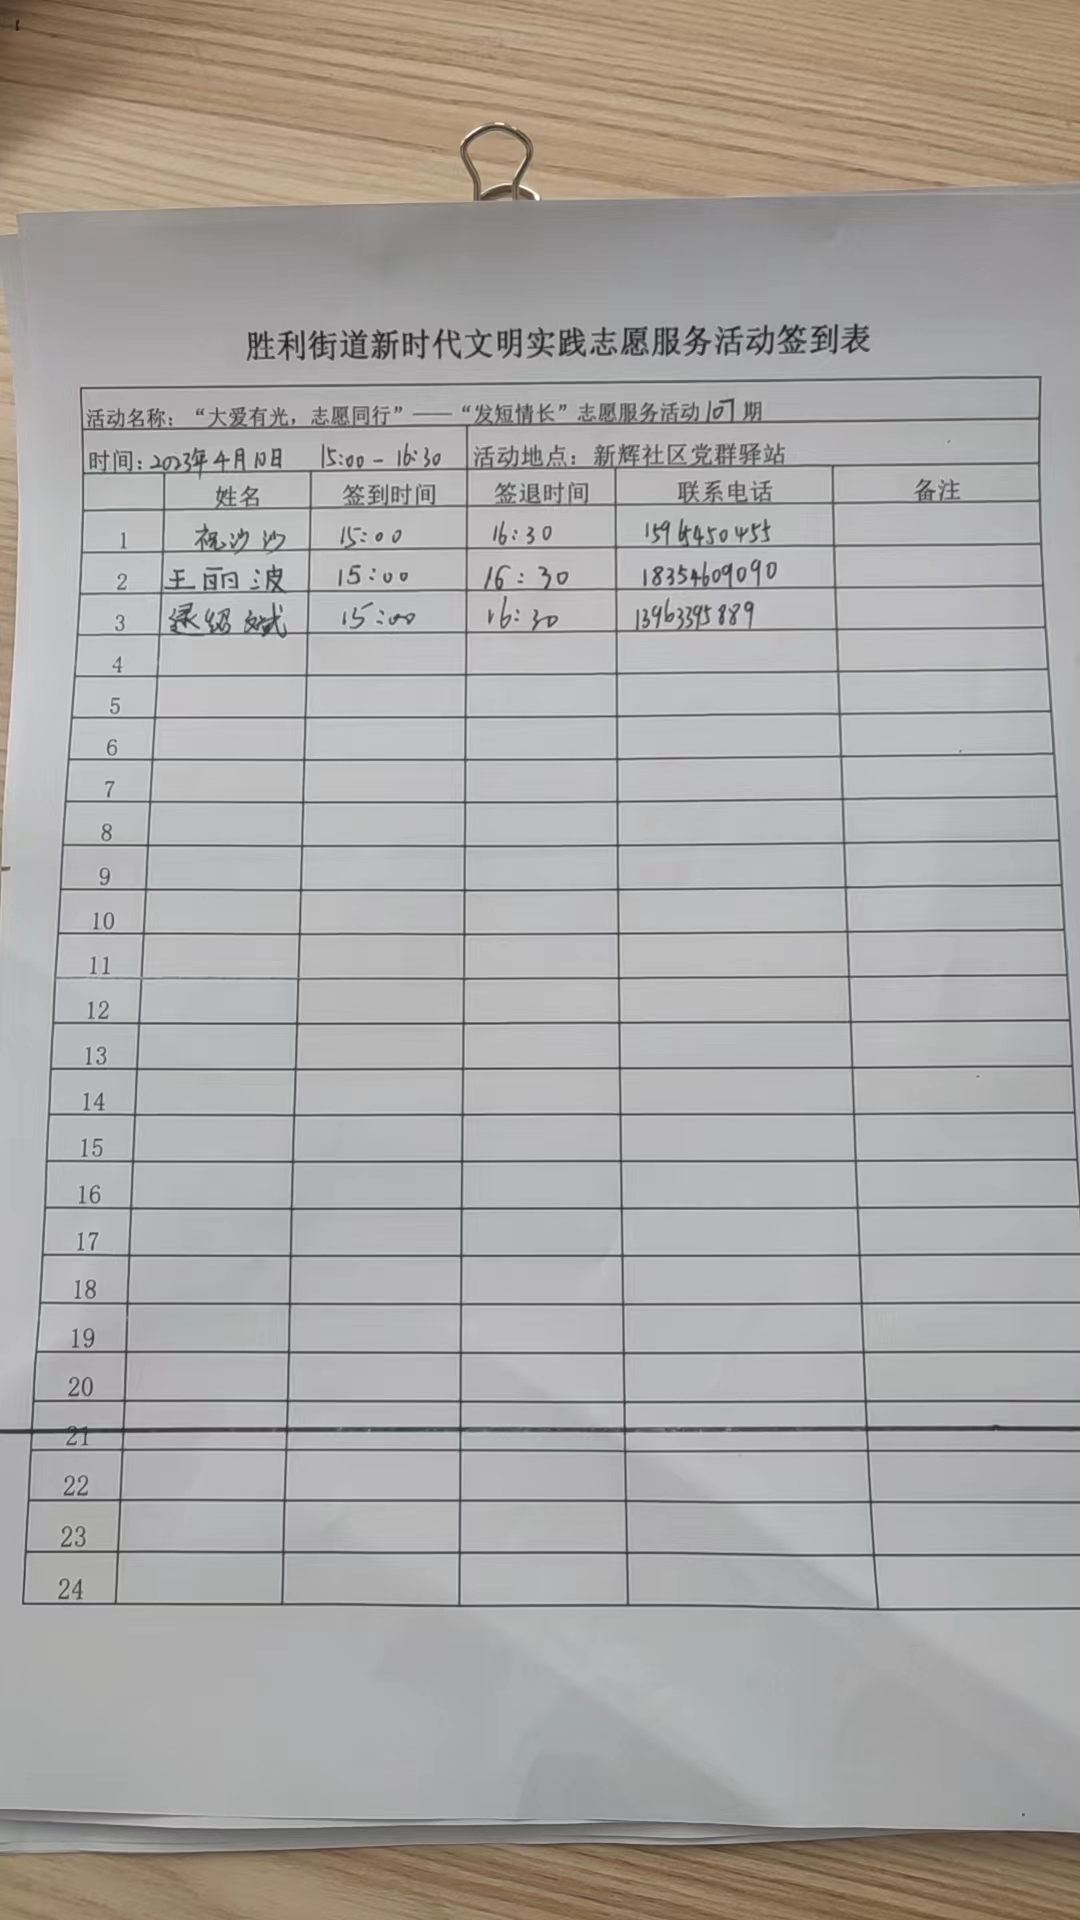 胜利街道新时代文明实践志愿服务活动签到表
活动名称：“大爱有光，志愿同行”——“发短情长”志愿服务活动107期
时间：2023年4月10日 15:00-16:30 活动地点：新辉社区党群驿站
姓名 签到时间 签退时间 联系电话 备注
1 祝沙沙 15:00 16:30
2 王丽波 15:00 16:30 18354609090
3 15:00 16:30 13963395889
4
5
6
7
8
9
10
11
12
13
14
15
16
17
18
19
20
21
22
23
24